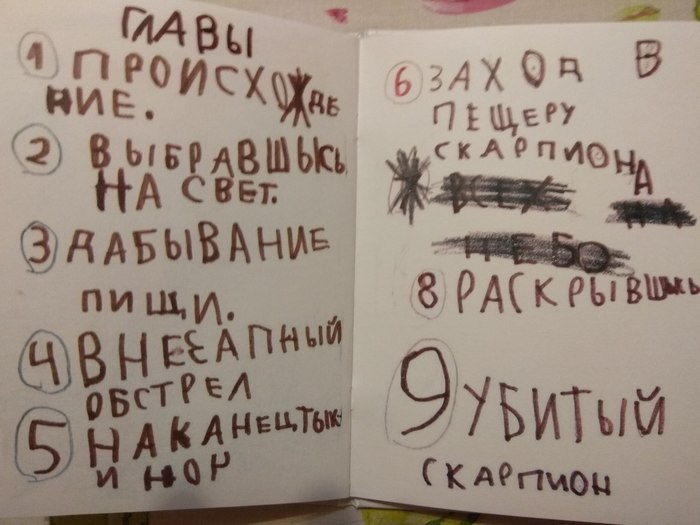 ГЛАВЫ
1 ПРОИСХОЖДЕ
НИЕ.
2 ВЫБРАВШЫСЬ
НА СВЕТ.
3 ДАБЫВАНИЕ
ПИЩИ.
4 ВНЕЕАПНЫЙ
ОБСТРЕЛ
5 НАКАНЕЦ,ТЫК
И НОР
6 ЗАХОД В
ПЕЩЕРУ
СКАРПИОНА
ВСЕХ НА
НЕБО
8 РАСКРЫВШЫСЬ
9 УБИТЫЙ
СКАРПИОН